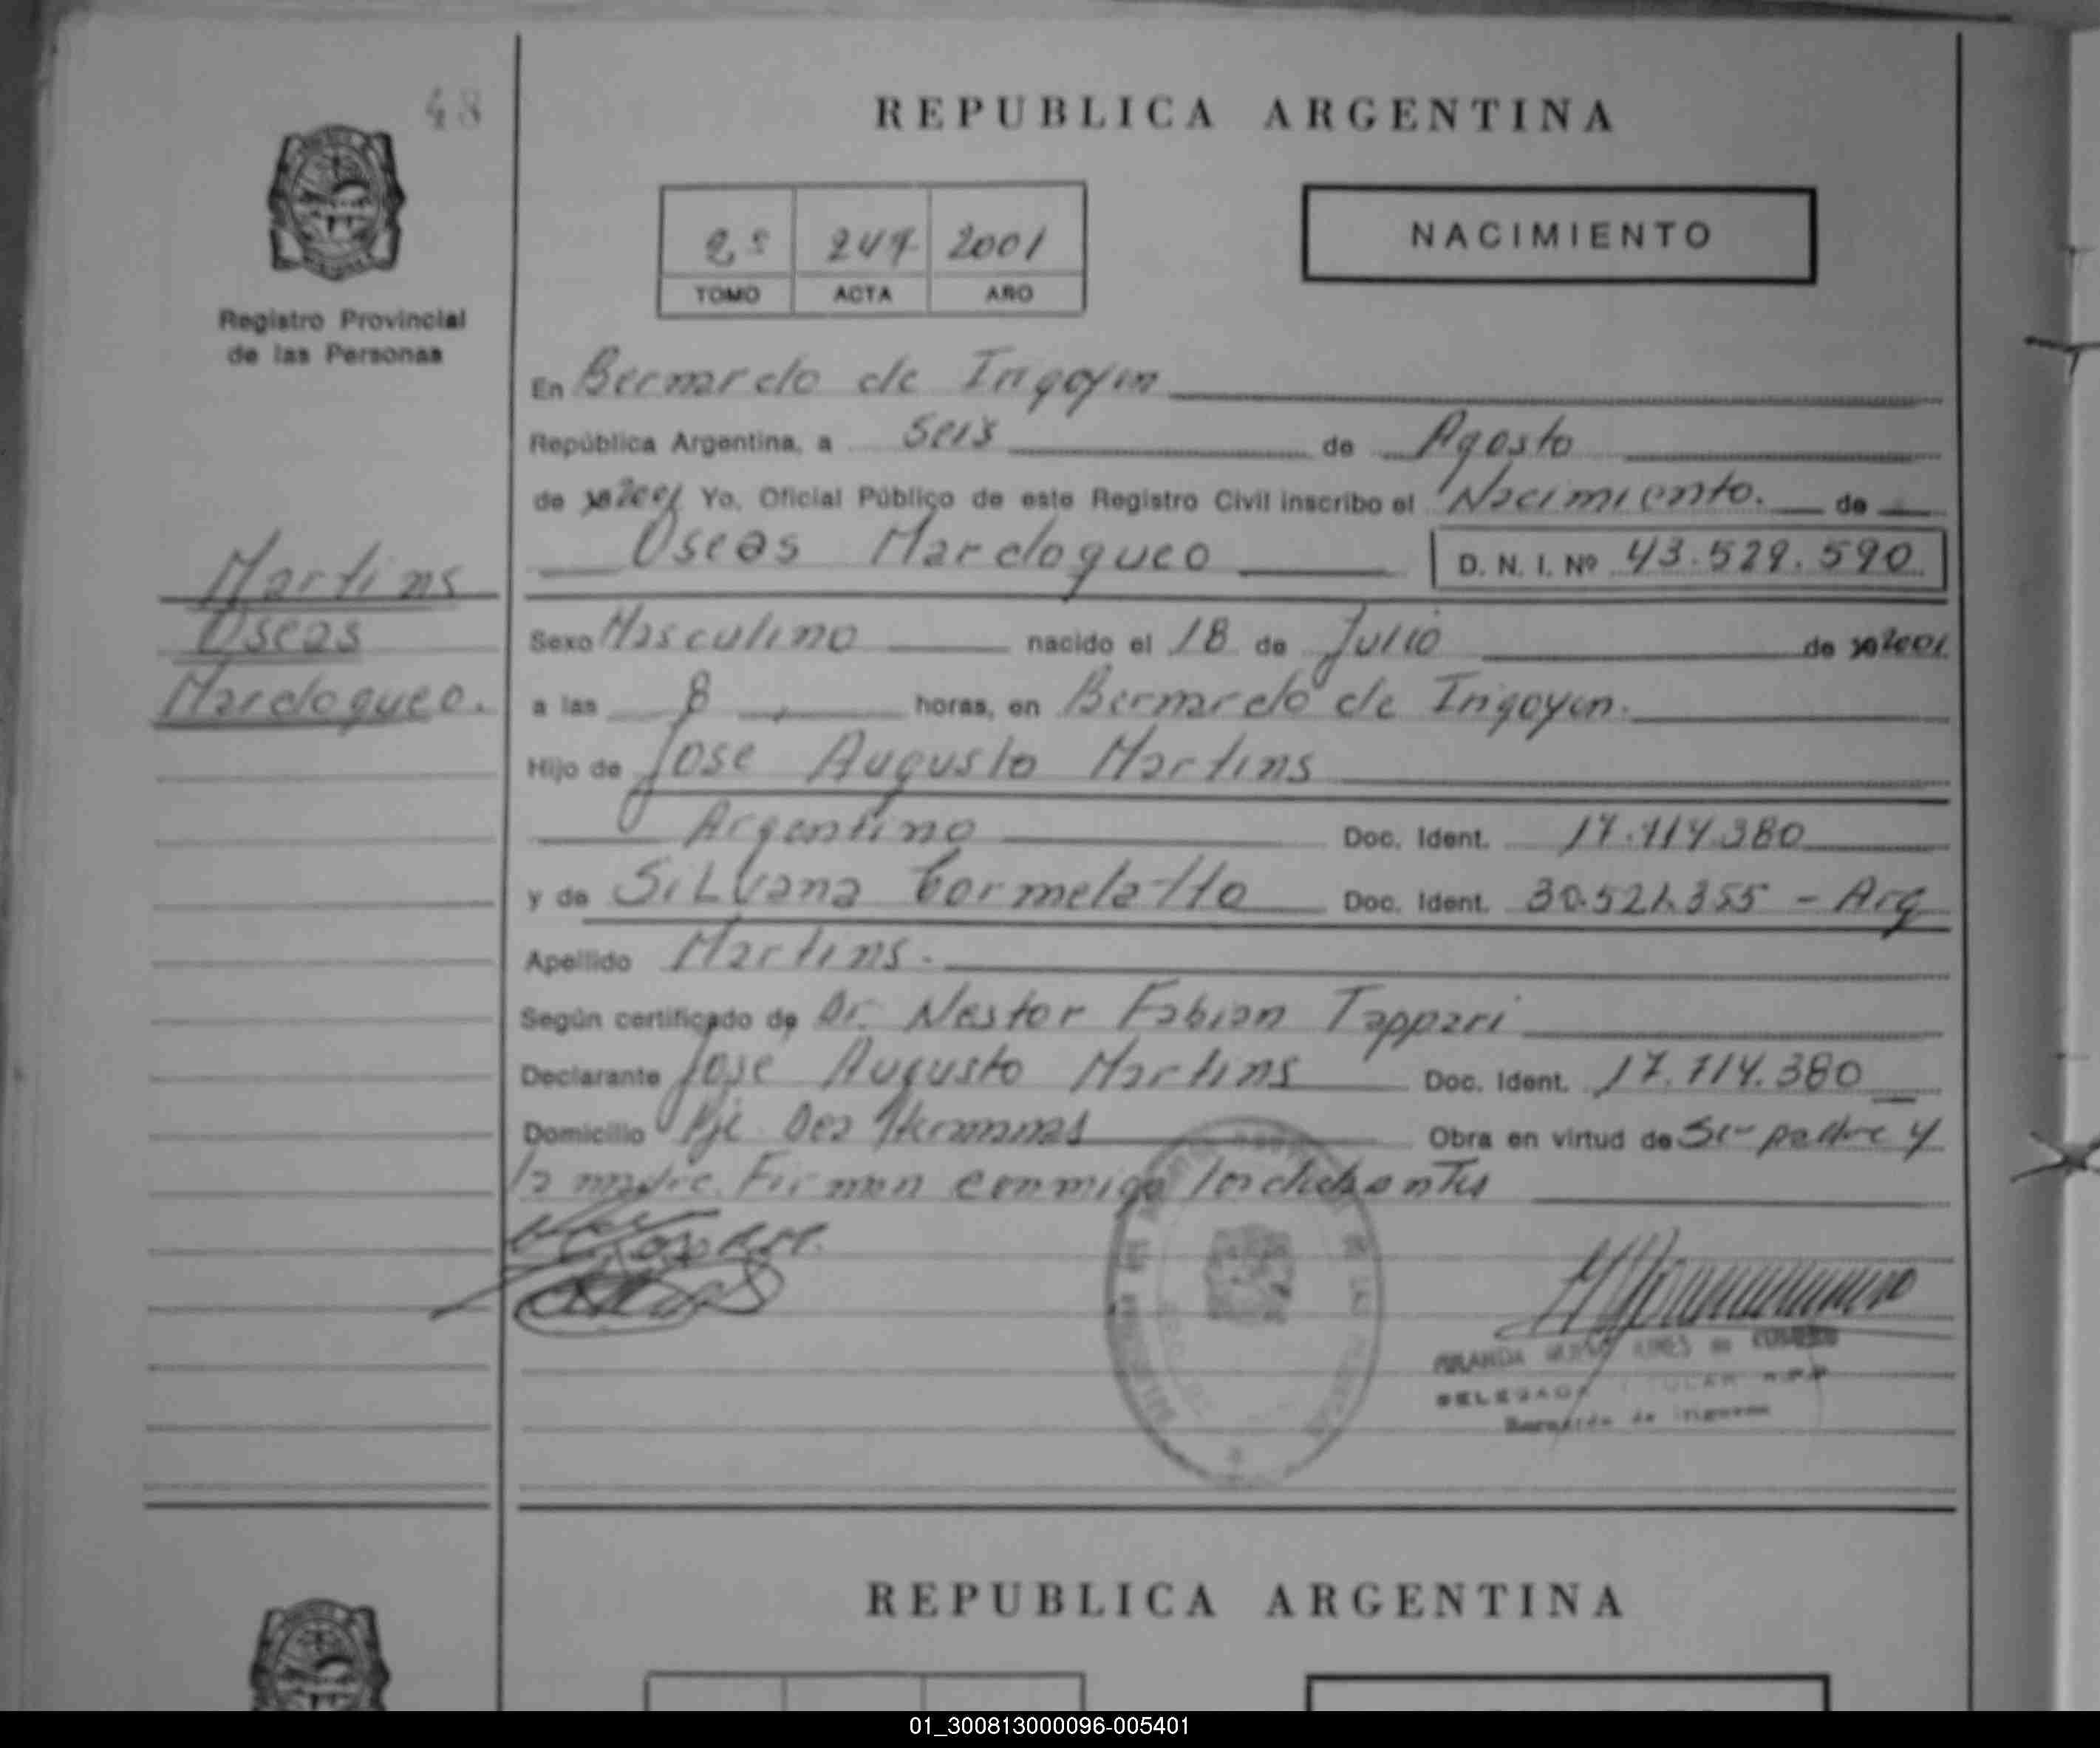 48
REPUBLICA ARGENTINA
2º 247 2001
TOMO ACTA AÑO
NACIMIENTO
Registro Provincial
de las Personas
En Bernardo de Irigoyen
República Argentina, a Seis de Agosto
de 2001 Yo, Oficial Público de este Registro Civil inscribo el Nacimiento. de
Oseas Mardoqueo D. N. I. Nº 43.529.590
Martins
Oseas
Mardoqueo.
Sexo Masculino nacido el 18 de Julio de 2001
a las 8 horas, en Bernardo de Irigoyen.
Hijo de Jose Augusto Martins
Argentino Doc. Ident. 17.714.380
y de Silvana Cormelatto Doc. Ident. 30.521.355 - Arg
Apellido Martins.
Según certificado de Dr. Nestor Fabian Tappari
Declarante Jose Augusto Martins Doc. Ident. 17.714.380
Domicilio Pje Dos Hermanas Obra en virtud de Ser padre y
la madre. Firman conmigo
DELEGADA TITULAR R.P.P
Bernardo de Irigoyen
REPUBLICA ARGENTINA
01_300813000096-005401